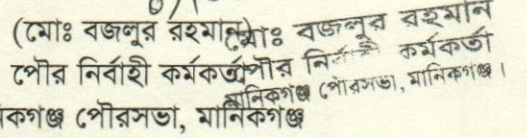 (মোঃ বজলুর রহমান)
পৌর নির্বাহী কর্মকর্তা
মানিকগঞ্জ পৌরসভা, মানিকগঞ্জ
মোঃ বজলুর রহমান
পৌর নির্বাহী কর্মকর্তা
মানিকগঞ্জ পৌরসভা, মানিকগঞ্জ।